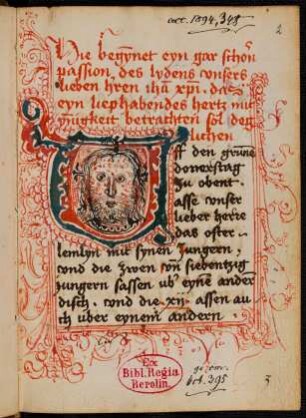 acc. 1894, 348
2
Hie begynnet eyn gar schön
passion, des lydens vnsers
lieben hren ihū xpi. daz
eyn liephabendes hertz mit
ynigkeit betrachten sol deg
lichen
Vff den grüne
donerstag
zu obent.
asse vnser
lieber herre
das oster
lemlyn mit synen Jungern.
vnd die zwen vn̄ siebentzig
jungern sassen vb eyne ander
disch. vnd die xij assen au
ch über eynem andern.
Ex
Bibl. Regia
Berolin.
Oct. 395